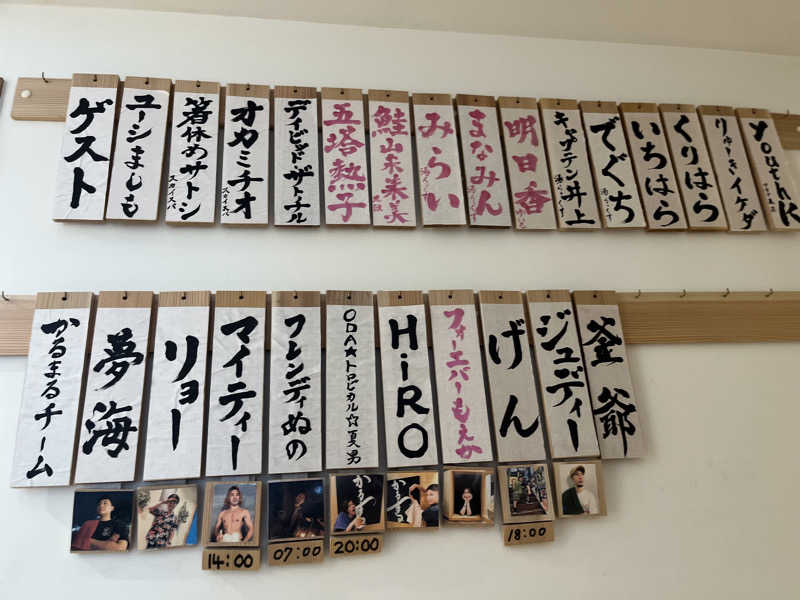 ゲスト
ユーシましも
箸休めサトシ
スカイスパ
オカミチオ
スカイスパ
デイビッド・ザ・トナル
五塔熱子
鮭山未来美
みらい
湯らっくす
まなみん
湯らっくす
明日香
キャプテン井上
湯らっくす
でぐち
湯らっくす
いちはら
くりはら
りゅーきイケダ
YouthK
かるまるチーム
夢海
リョー
マイティー
フレンディぬの
ODA★トロピカル☆夏男
HiRO
フォーエバーもえか
げん
ジュディー
釜爺
14:00
07:00
20:00
18:00